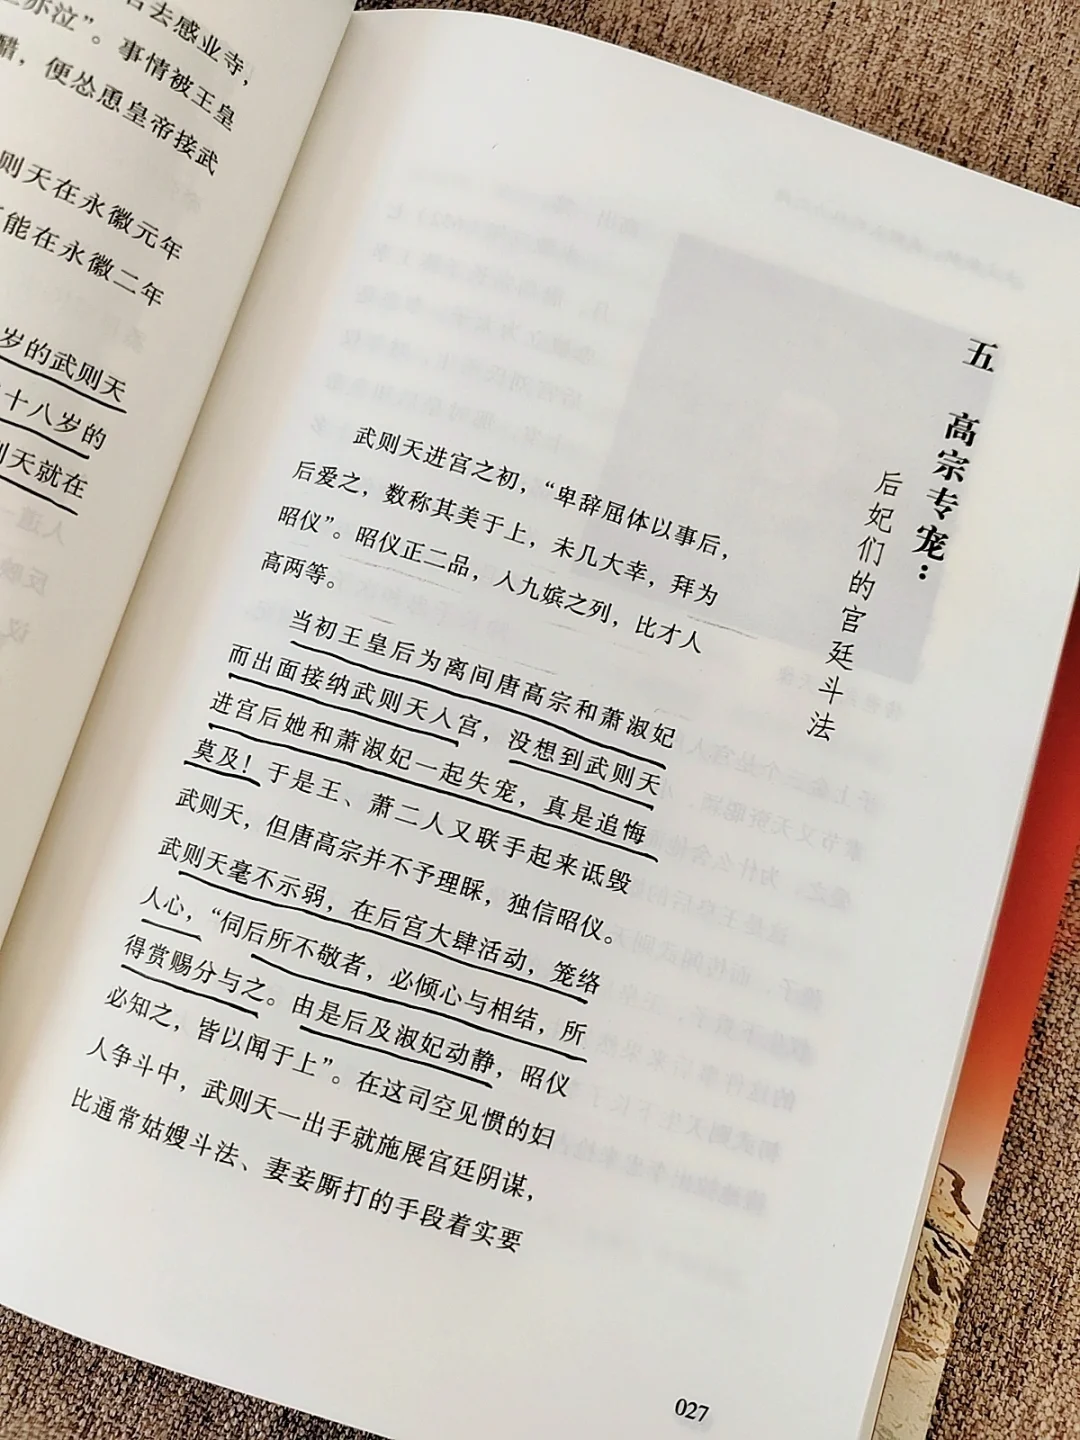 去感业寺，
亦泣”。事情被王皇
醋，便怂恿皇帝接武
则天在永徽元年
能在永徽二年
岁的武则天
十八岁的
则天就在
五 高宗专宠：
后妃们的宫廷斗法
武则天进宫之初，“卑辞屈体以事后，
后爱之，数称其美于上，未几大幸，拜为
昭仪”。昭仪正二品，人九嫔之列，比才人
高两等。
当初王皇后为离间唐高宗和萧淑妃
而出面接纳武则天人宫，没想到武则天
进宫后她和萧淑妃一起失宠，真是追悔
莫及！于是王、萧二人又联手起来诋毁
武则天，但唐高宗并不予理睬，独信昭仪。
武则天毫不示弱，在后宫大肆活动，笼络
人心，“伺后所不敬者，必倾心与相结，所
得赏赐分与之。由是后及淑妃动静，昭仪
必知之，皆以闻于上”。在这司空见惯的妇
人争斗中，武则天一出手就施展宫廷阴谋，
比通常姑嫂斗法、妻妾厮打的手段着实要
027